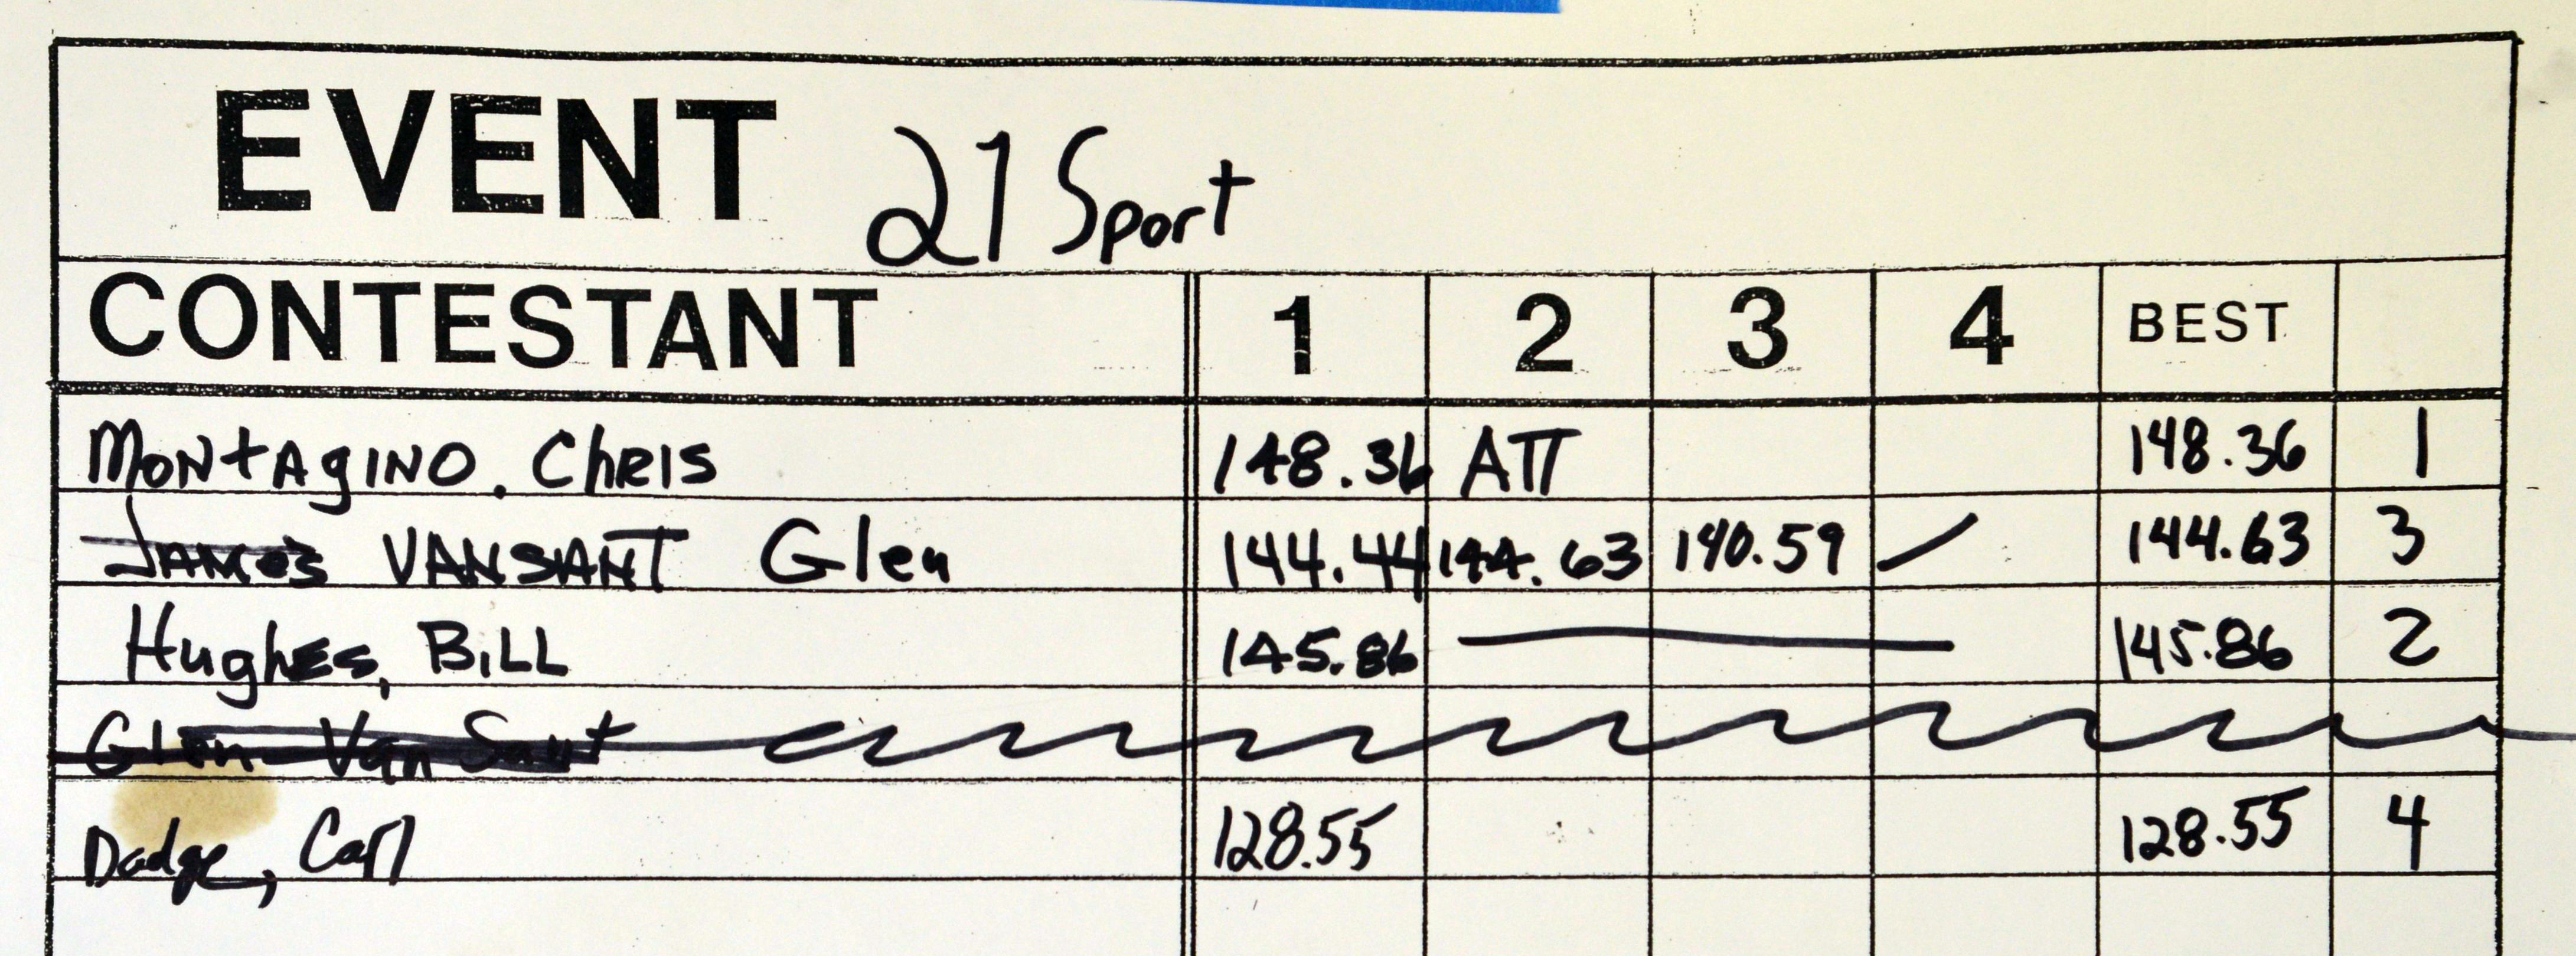 EVENT 21 Sport
CONTESTANT 1 2 3 4 BEST
MONTAgINO. ChRIS 148.36 ATT 148.36 1
JAMES VANSANT Glen 144.44 144.63 140.59 / 144.63 3
HughES, BiLL 145.86 — 145.86 2
Glen Van Sant
Dodge, Carl 128.55 128.55 4